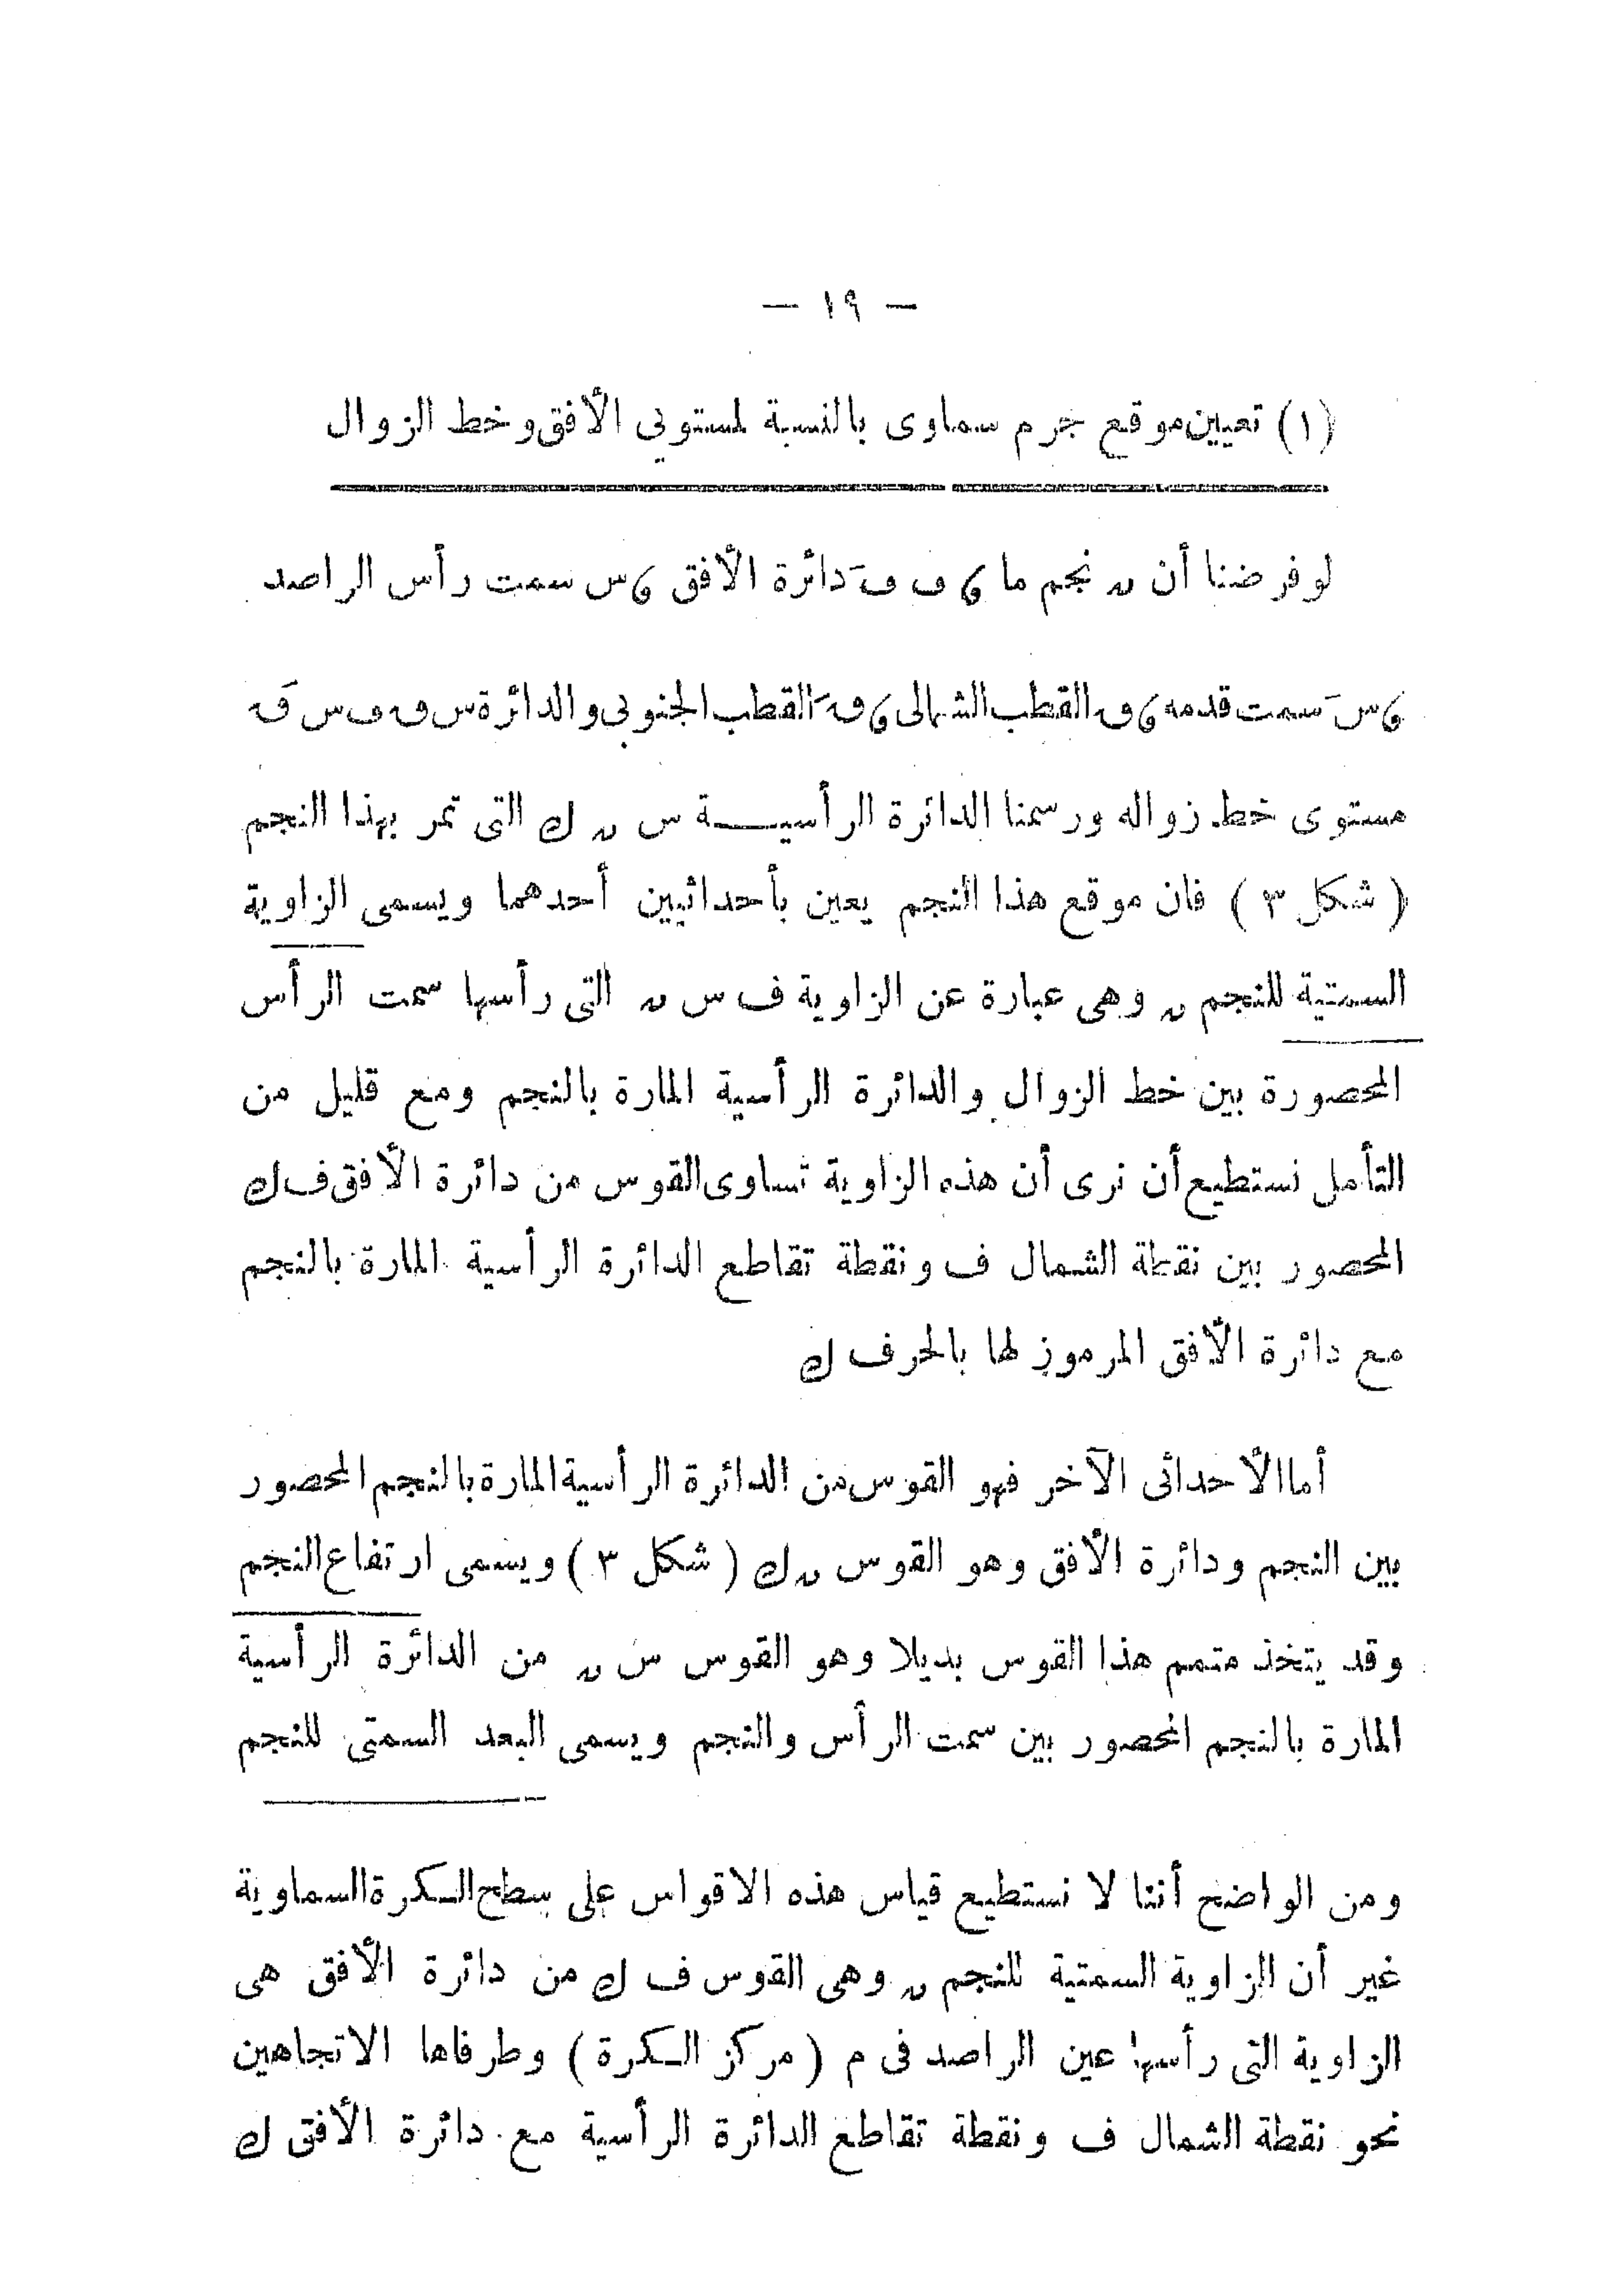 — ١٩ —
(١) تعيين موقع جرم سماوى بالنسبة لمستويي الأفق وخط الزوال
لو فرضنا أن ں نجم ما ، ف فَ دائرة الأفق ، س سمت رأس الراصد
، سَ سمت قدمه ، ق القطب الشمالى ، قَ القطب الجنوبى والدائرة س ق ف س قَ
مستوى خط زواله ورسمنا الدائرة الرأسيـــة س ں ك التى تمر بهذا النجم
( شكل ٣ ) فان موقع هذا النجم يعين بأحداثيين أحدهما ويسمى الزاوية
السمتية للنجم ں وهى عبارة عن الزاوية ف س ں التى رأسها سمت الرأس
المحصورة بين خط الزوال والدائرة الرأسية المارة بالنجم ومع قليل من
التأمل نستطيع أن نرى أن هذه الزاوية تساوى القوس من دائرة الأفق ف ك
المحصور بين نقطة الشمال ف ونقطة تقاطع الدائرة الرأسية المارة بالنجم
مع دائرة الأفق المرموز لها بالحرف ك
أما الأحداثى الآخر فهو القوس من الدائرة الرأسية المارة بالنجم المحصور
بين النجم ودائرة الأفق وهو القوس ں ك ( شكل ٣ ) ويسمى ارتفاع النجم
وقد يتخذ متمم هذا القوس بديلا وهو القوس س ں من الدائرة الرأسية
المارة بالنجم المحصور بين سمت الرأس والنجم ويسمى البعد السمتى للنجم
ومن الواضح أننا لا نستطيع قياس هذه الاقواس على سطح الكرة السماوية
غير أن الزاوية السمتية للنجم ں وهى القوس ف ك من دائرة الأفق هى
الزاوية التى رأسها عين الراصد فى م ( مركز الكرة ) وطرفاها الاتجاهين
نحو نقطة الشمال ف ونقطة تقاطع الدائرة الرأسية مع دائرة الأفق ك